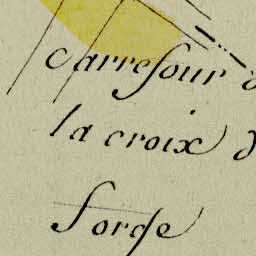 carrefour d
la croix d
sorge